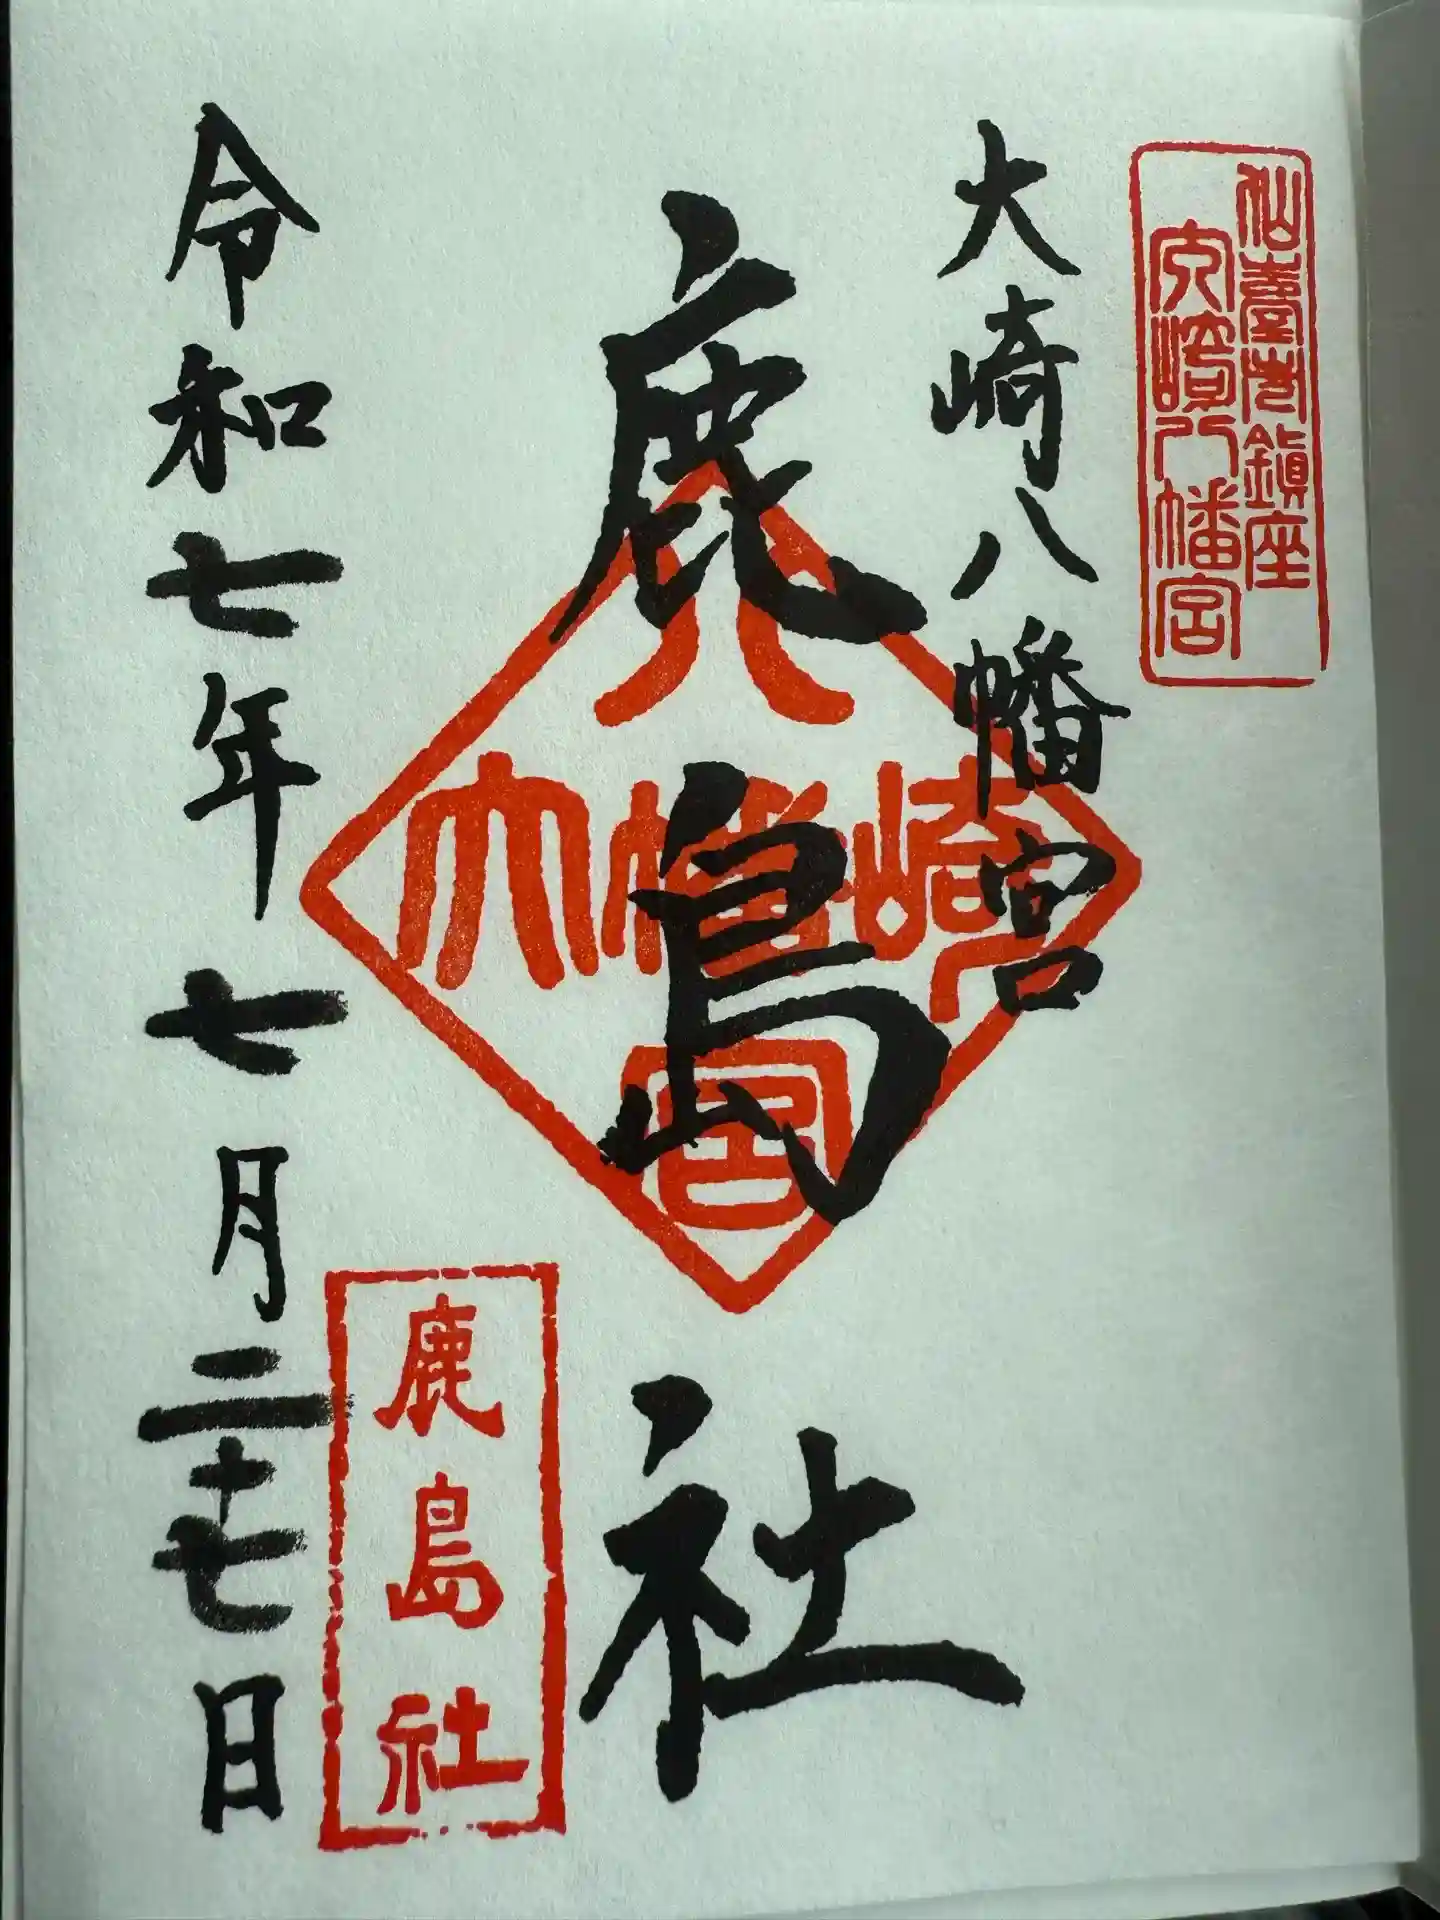 仙臺市鎮座
大崎八幡宮
大崎八幡宮
鹿島社
八
大幡崎
宮
鹿島社
令和七年七月二十七日